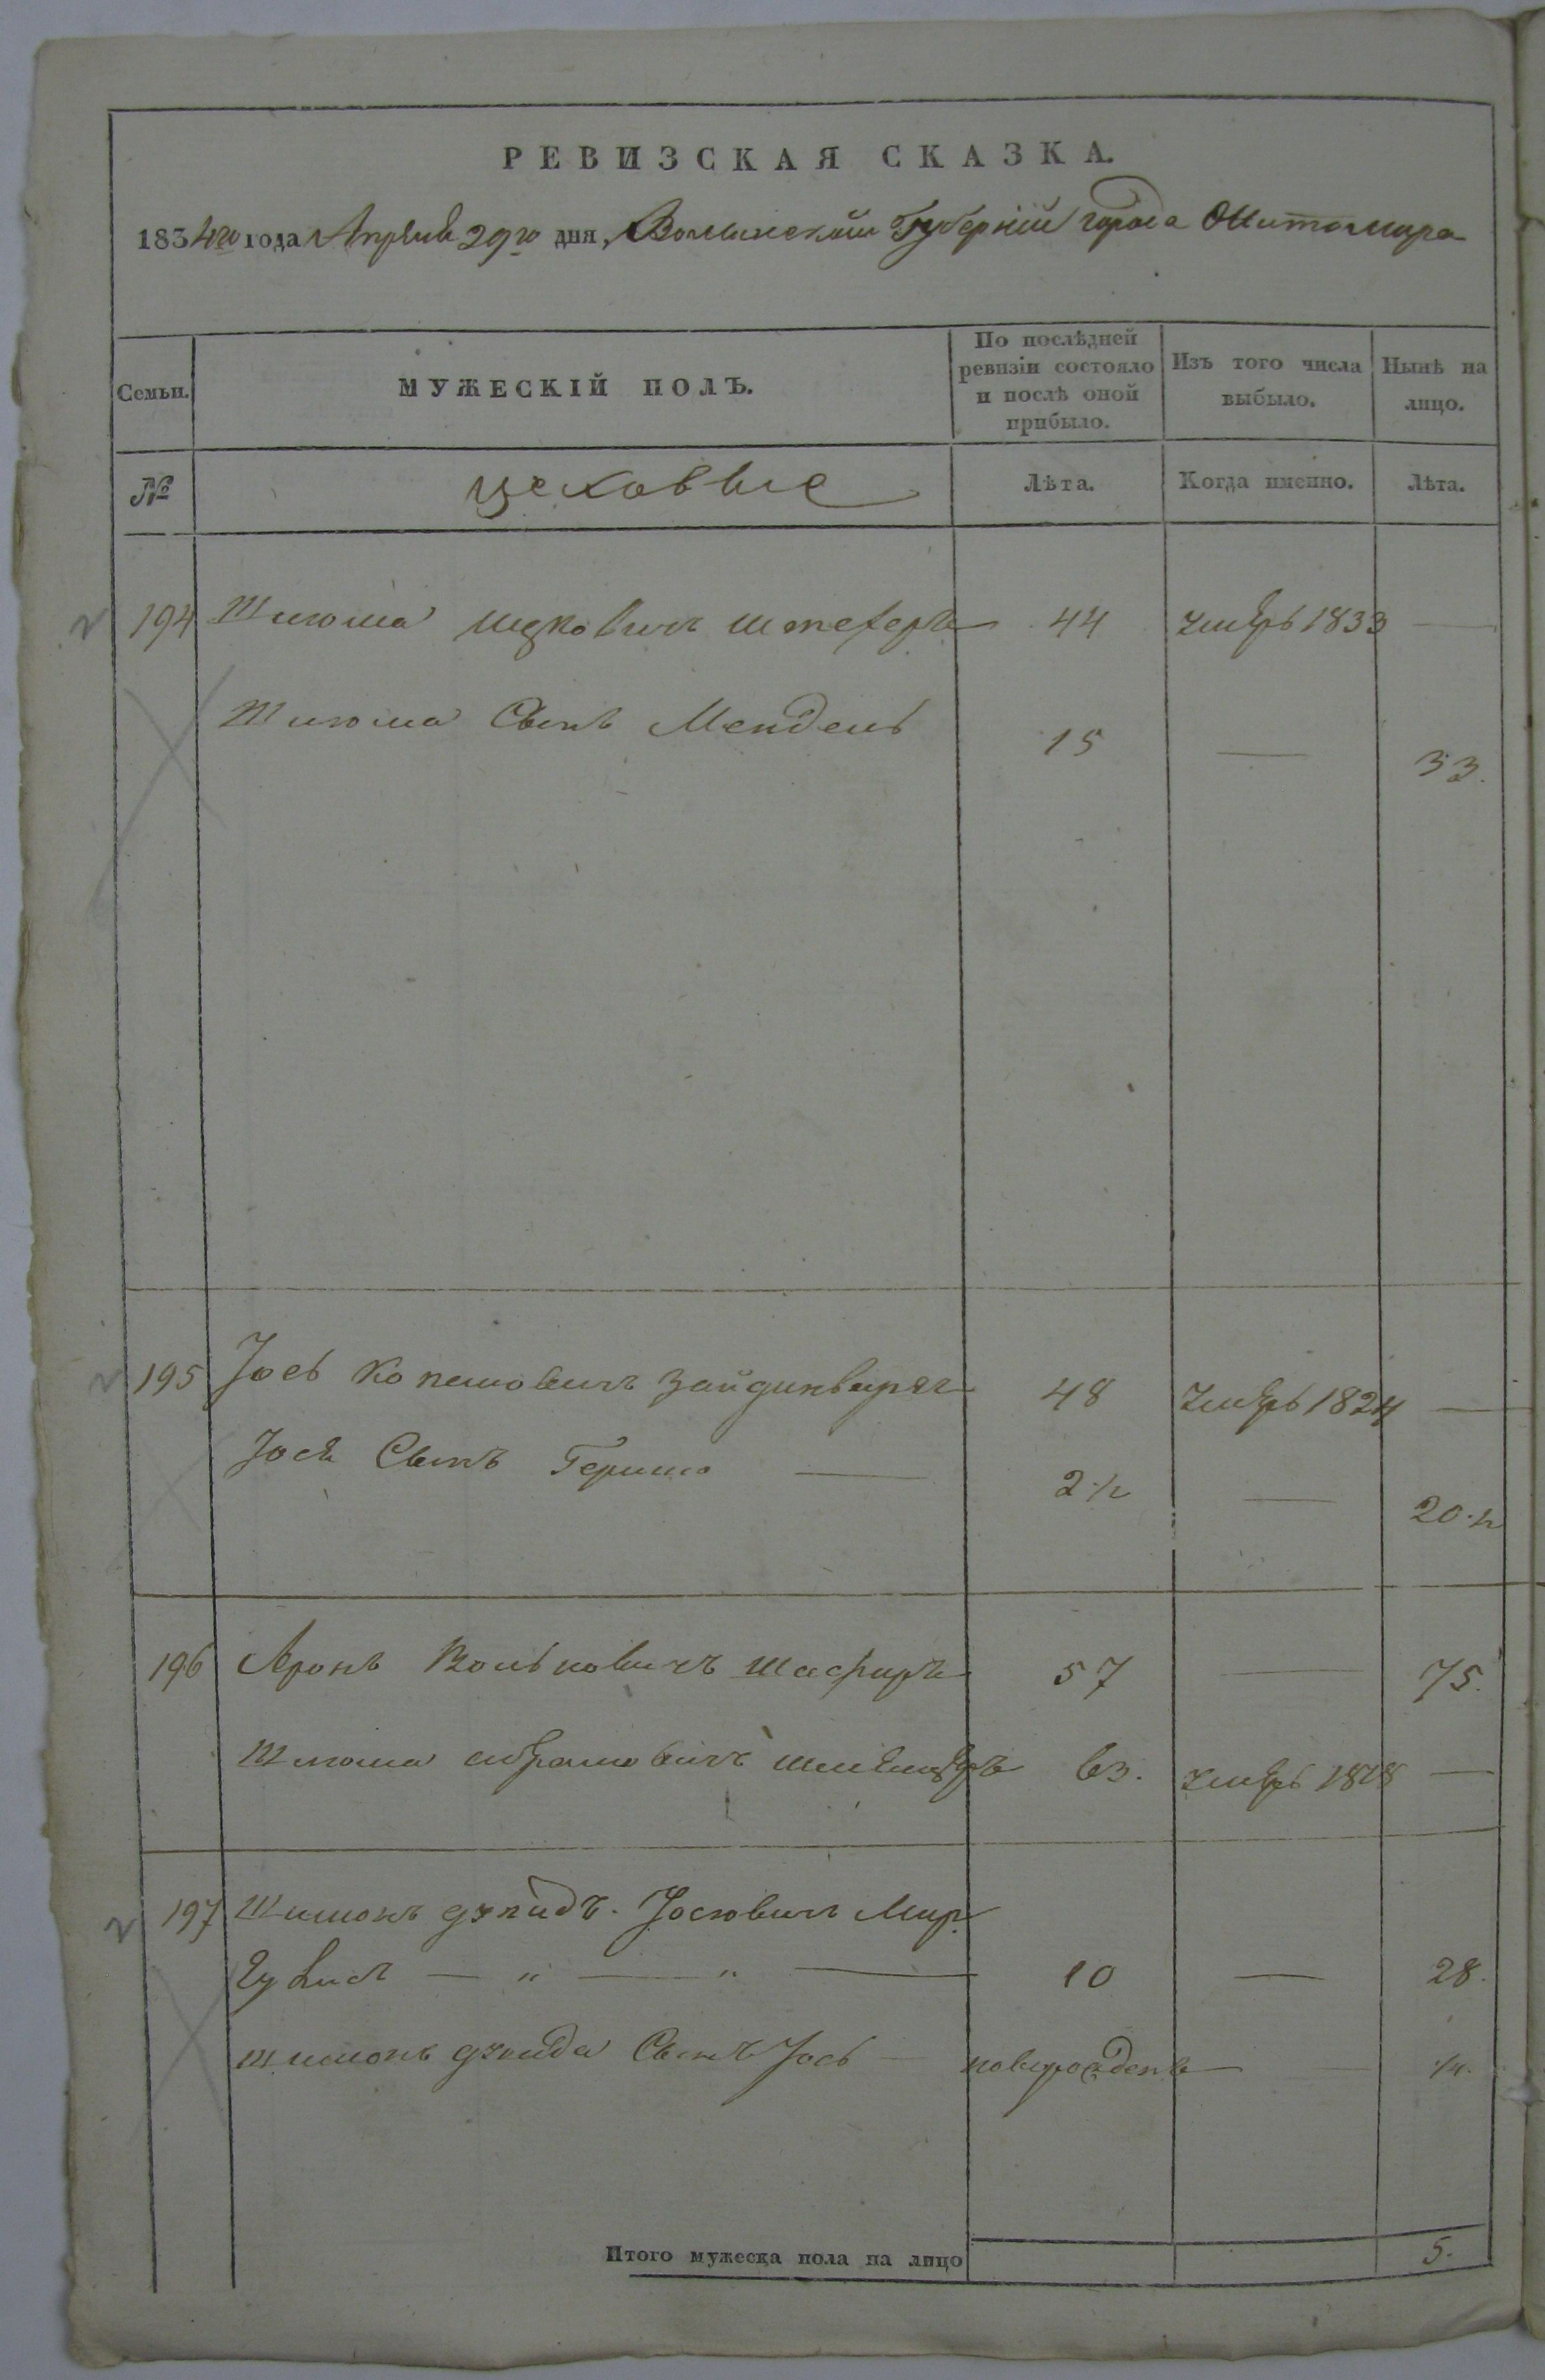 РЕВИЗСКАЯ СКАЗКА.
1834го года Апреля 29го дня, Волынской Губернии города Житомира
Семьи.
МУЖЕСКІЙ ПОЛЪ.
По послѣдней ревизіи состояло и послѣ оной прибыло.
Изъ того числа выбыло.
Нынѣ на лицо.
№
цеховые
Лѣта.
Когда именно.
Лѣта.
194 Шлюма Ицковичъ 44 умеръ 1833 —
Шлюма Сынъ Мендель 15 — 33.
195 Іось 48 умеръ 1824 —
Іося Сынъ Гершко — 2 ½ — 20 ½
196 Аронъ Вольковичъ Шафиръ 57 — 75.
Шлюма абрамовичъ 63. умеръ 1818 —
197 Шимонъ Іосіовичъ Мир
— " — " — 10 — 28.
Шимонъ Сынъ Іось — новорожденъ — — ¼.
Итого мужеска пола на лицо 5.